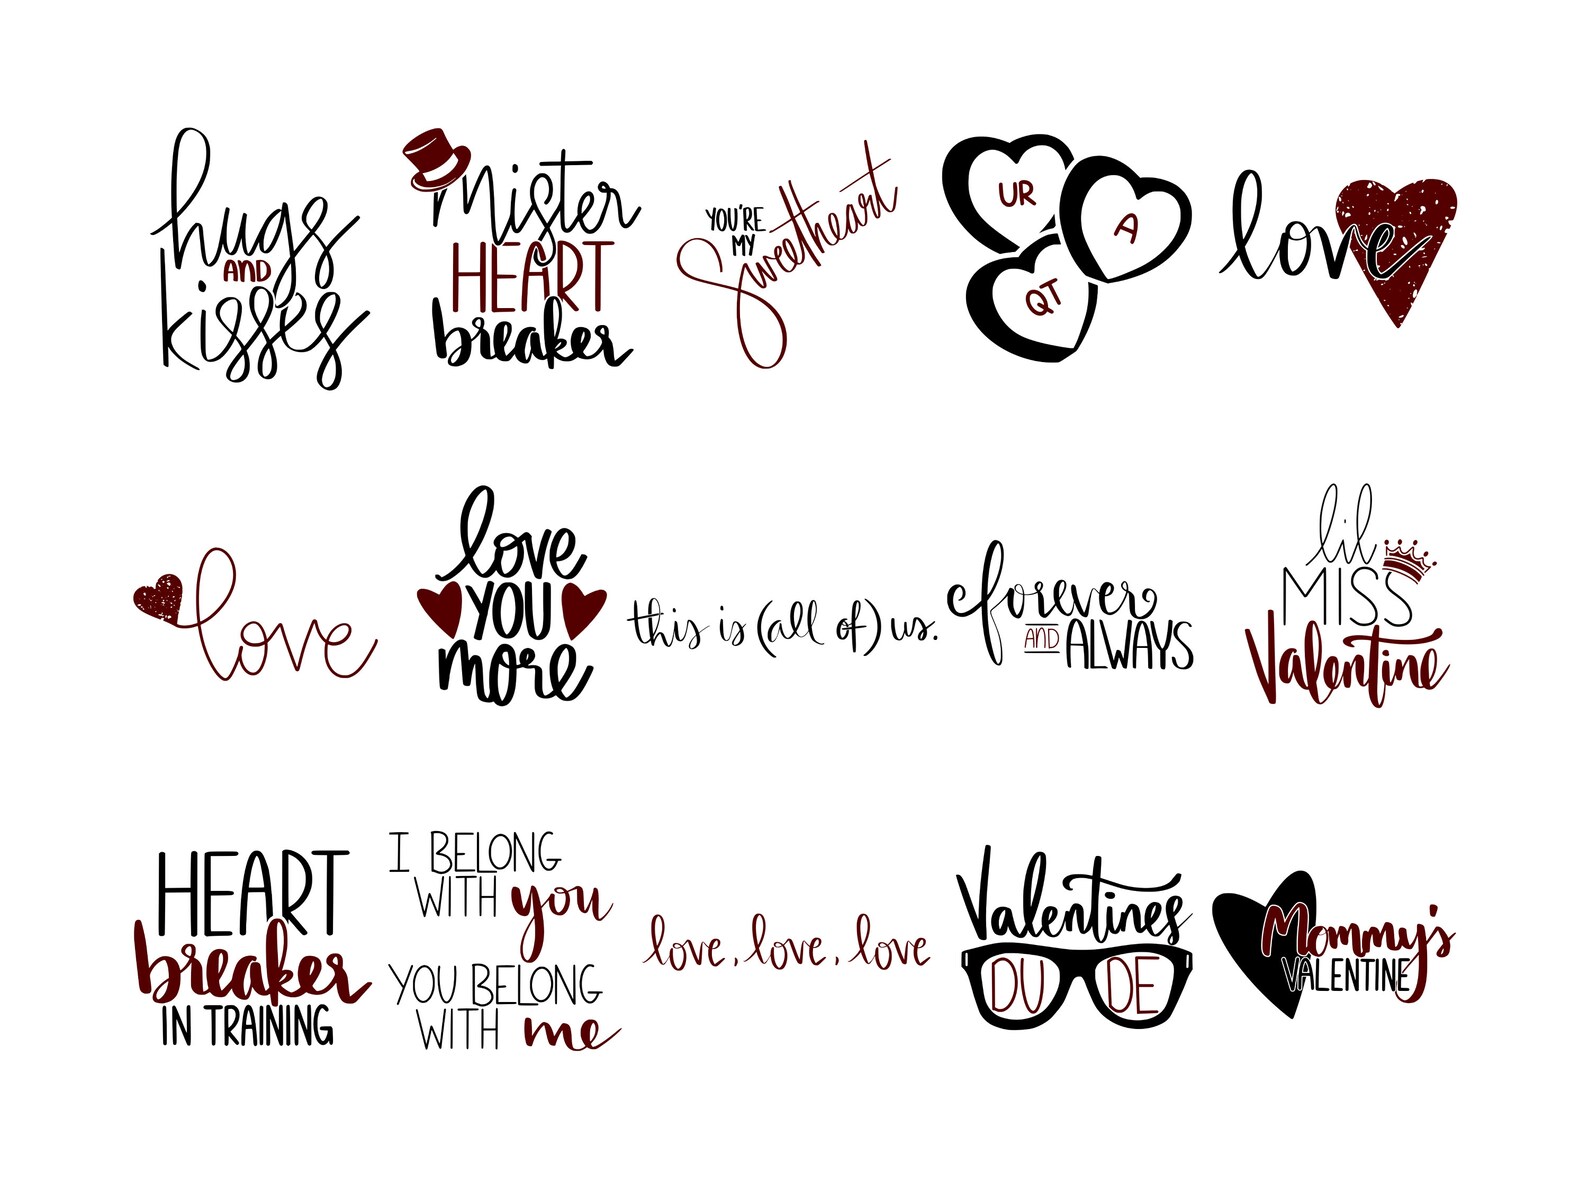 hugs
AND
kisses
Mister
HEART
breaker
YOU'RE
MY
Sweetheart
UR
A
QT
love
love
love
YOU
more
this is (all of) us.
forever
AND ALWAYS
lil
MISS
Valentine
HEART
breaker
IN TRAINING
I BELONG
WITH you
YOU BELONG
WITH me
love, love, love
Valentines
DUDE
Mommy's
VALENTINE